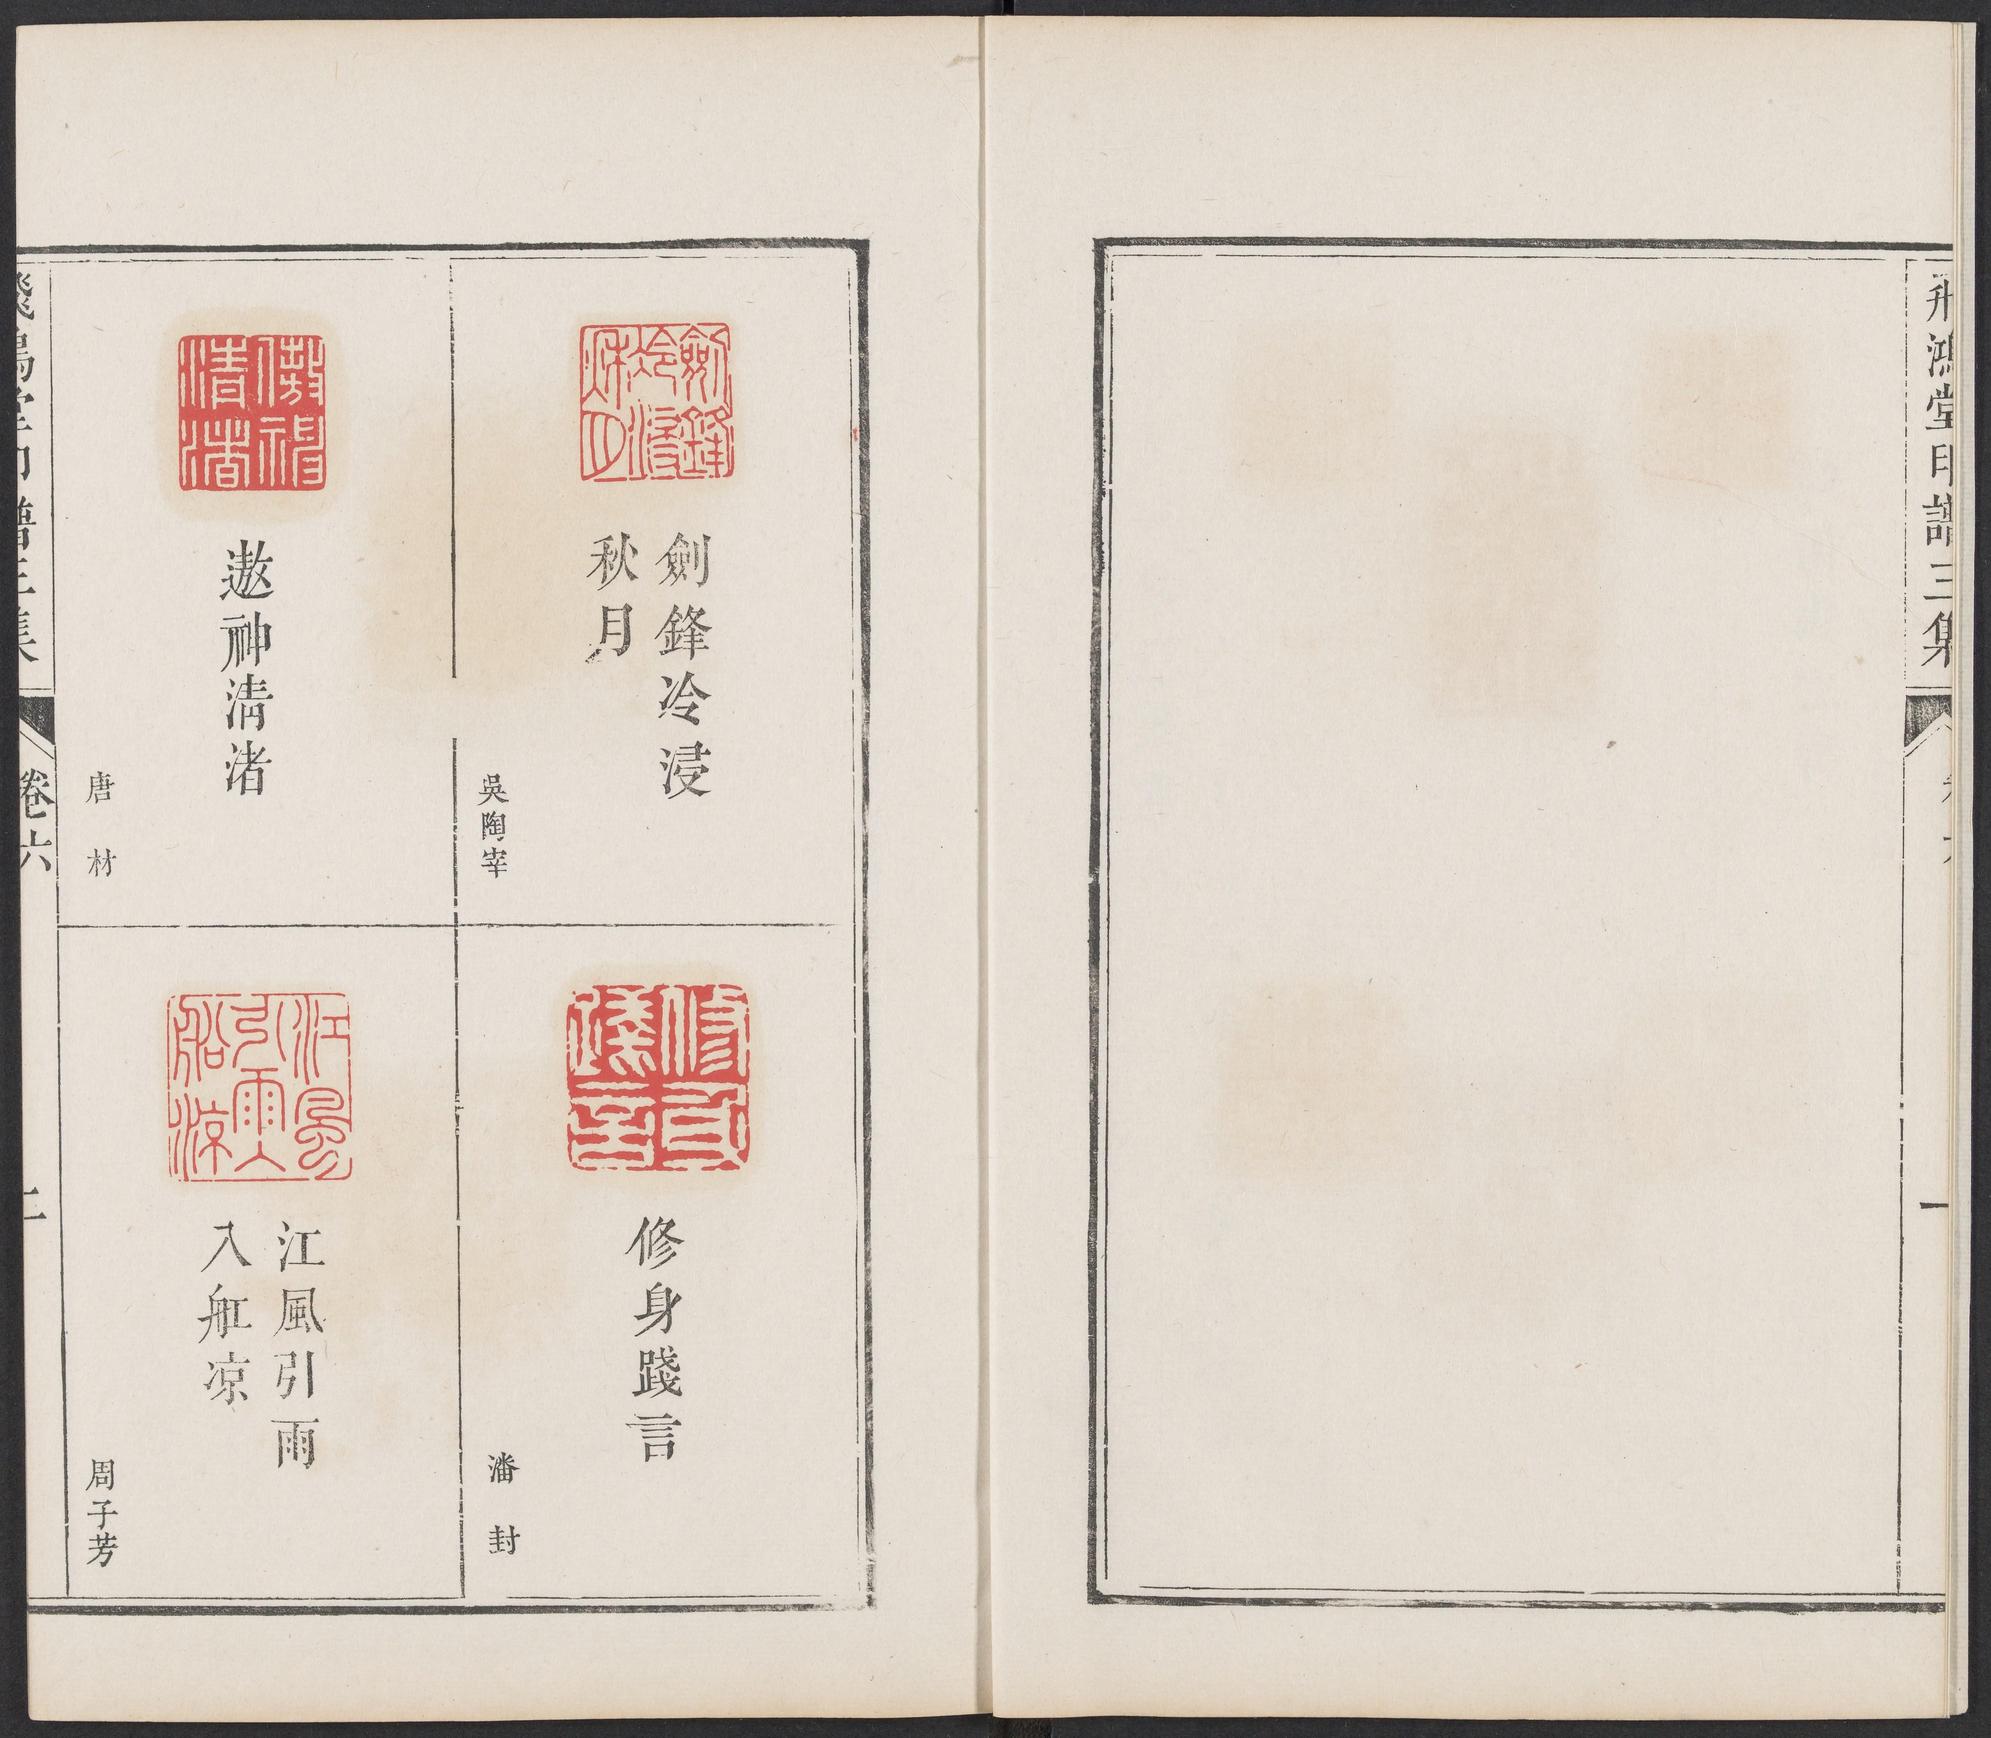 飛鴻堂印譜三集
一
劍鋒冷浸
秋月
吳陶宰
修身踐言
潘封
遨神清渚
唐材
江風引雨
入舡凉
周子芳
飛鴻堂印譜三集
卷六
二